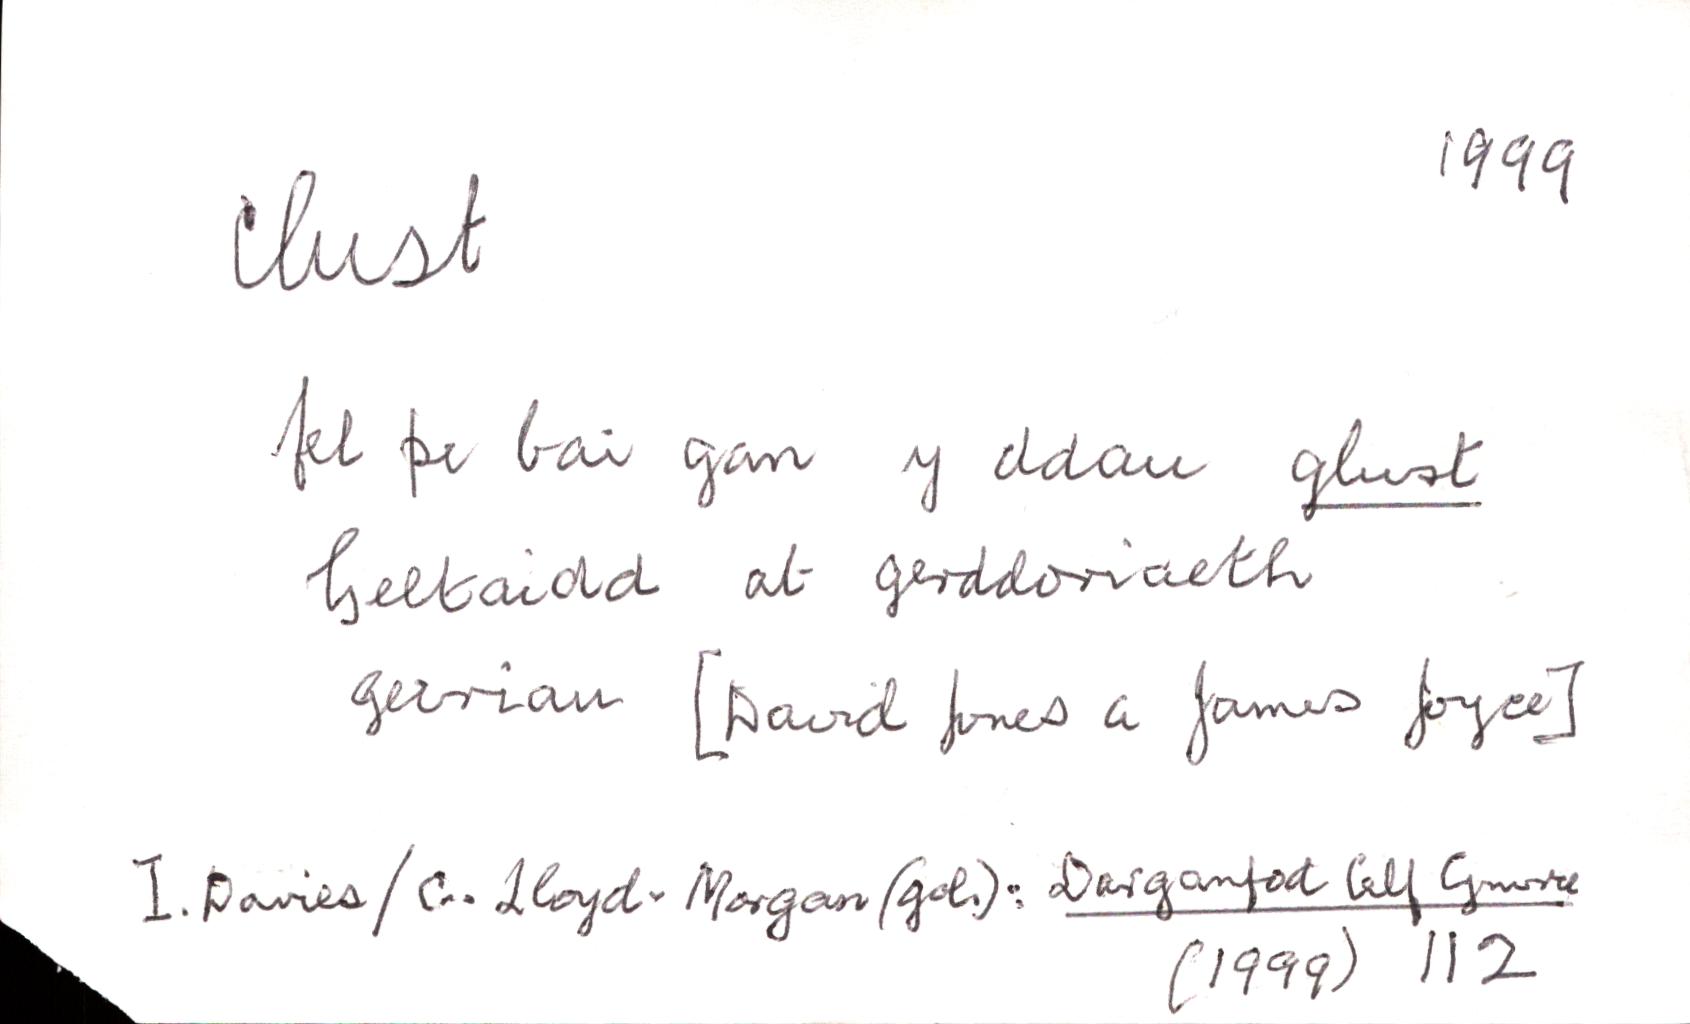 1999
clust
fel pe bai gan y ddau glust
Geltaidd at gerddoriaeth
geiriau [David Jones a James Joyce]
I. Davies / C. Lloyd-Morgan (gol.): Darganfod Celf Cymru
(1999) 112